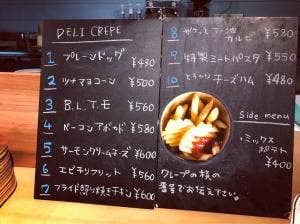 DELI CREPE
1 プレーンドッグ ¥430
2 ツナマヨコーン ¥500
3 B.L.T.モ ¥560
4 ベーコンアボカド ¥580
5 サーモンクリームチーズ ¥600
6 エビチンフリット ¥560
7 フライド照り焼きチキン ¥600
8 カルビ ¥530
9 特製ミートパスタ ¥550
10 とろ〜りチーズハム ¥480
Side menu
・ミックスポテト
¥400
クレープの横の
番号でお伝え下さい。